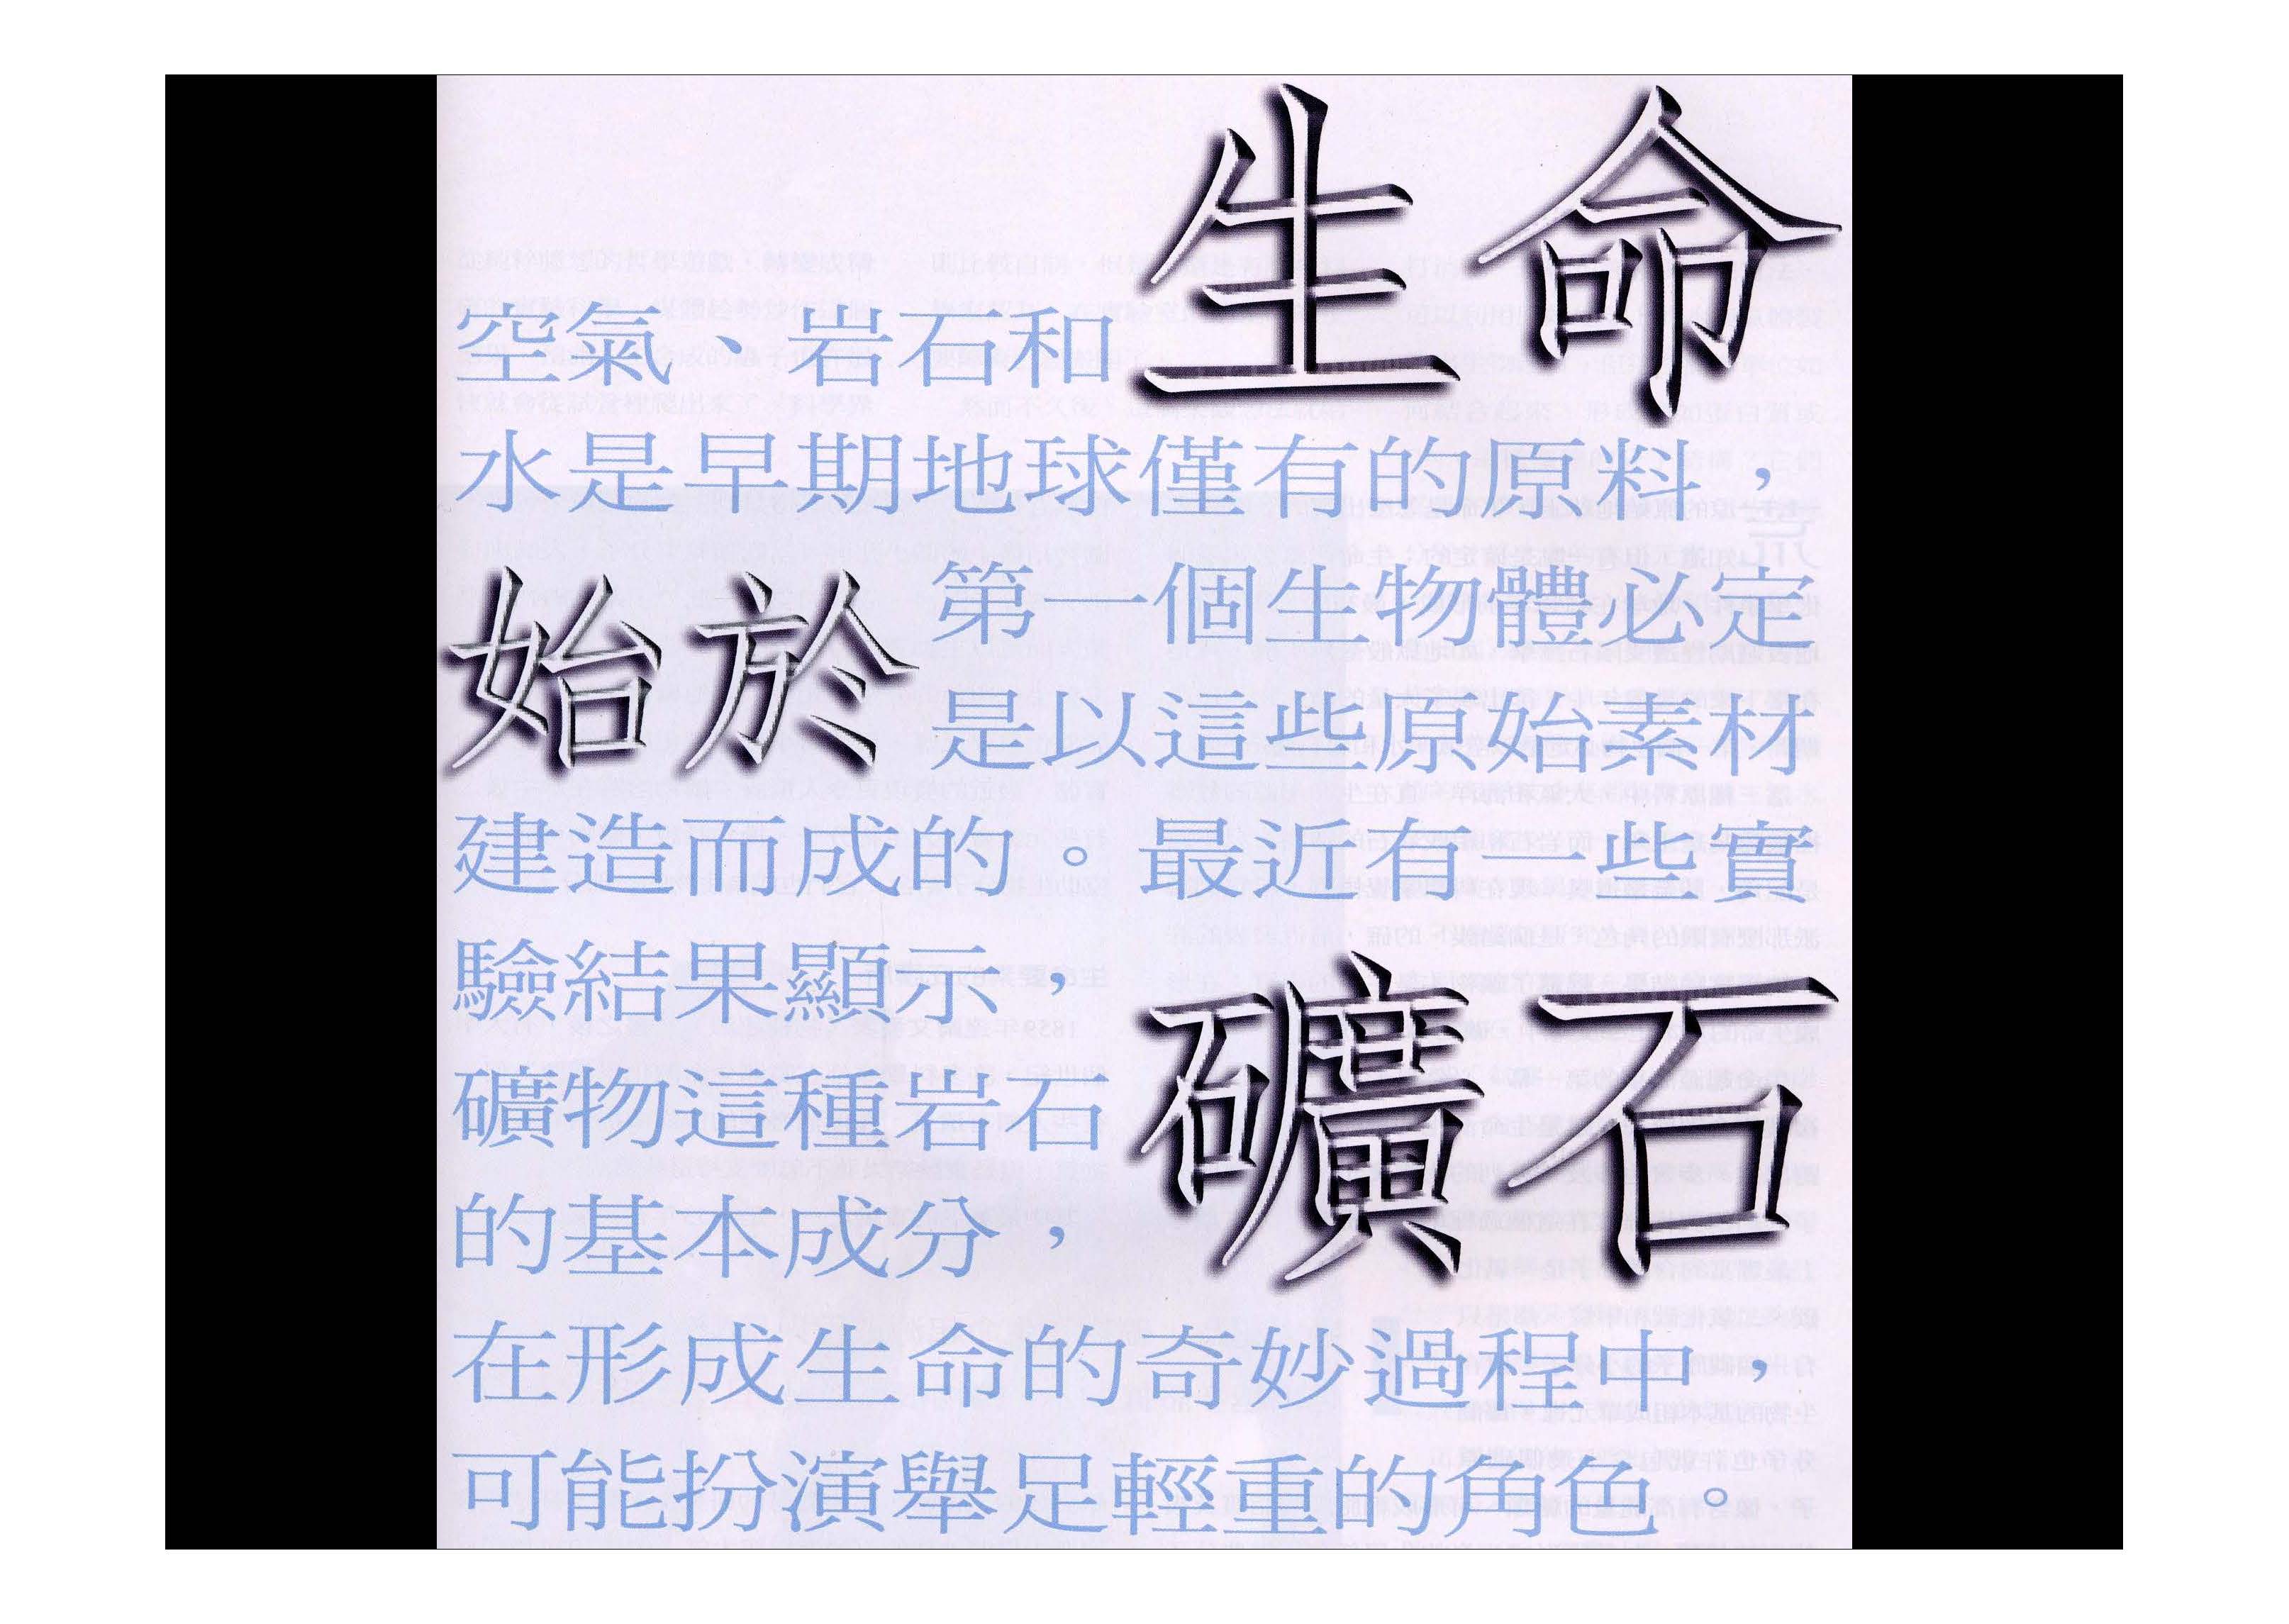 生命
空氣、岩石和
水是早期地球僅有的原料，
始於
第一個生物體必定
是以這些原始素材
建造而成的。最近有一些實
驗結果顯示，
礦石
礦物這種岩石
的基本成分，
在形成生命的奇妙過程中，
可能扮演舉足輕重的角色。